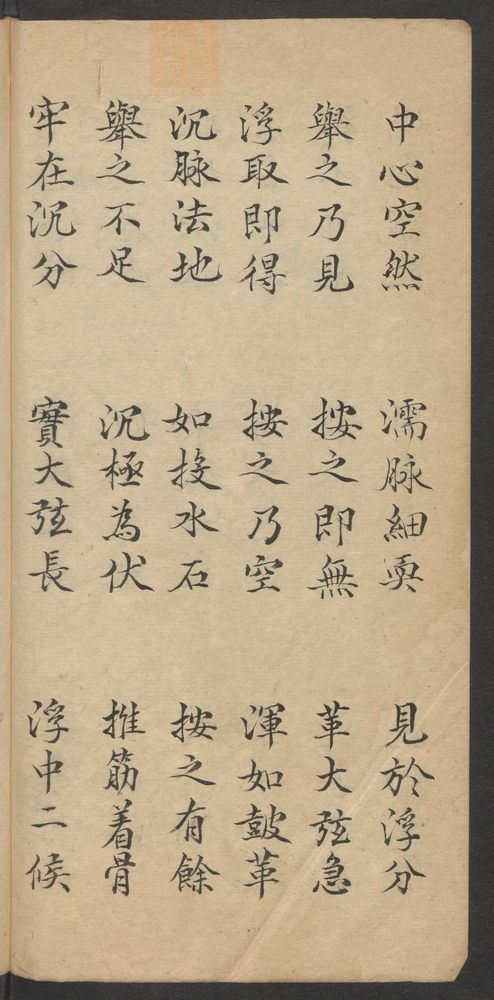 中心空然　濡脉細耎　見於浮分
舉之乃見　按之即無　革大弦急
浮取即得　按之乃空　渾如鼓革
沉脉法地　如投水石　按之有餘
舉之不足　沉極為伏　推筋着骨
牢在沉分　實大弦長　浮中二候